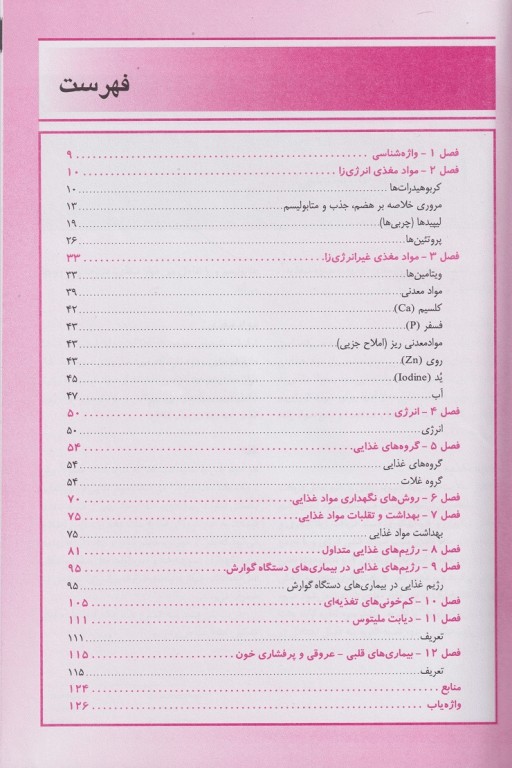 فهرست
فصل ۱ - واژه‌شناسی ........ ۹
فصل ۲ - مواد مغذی انرژی‌زا ........ ۱۰
کربوهیدرات‌ها ........ ۱۰
مروری خلاصه بر هضم، جذب و متابولیسم ........ ۱۳
لیپیدها (چربی‌ها) ........ ۱۹
پروتئین‌ها ........ ۲۶
فصل ۳ - مواد مغذی غیرانرژی‌زا ........ ۳۳
ویتامین‌ها ........ ۳۳
مواد معدنی ........ ۳۹
کلسیم (Ca) ........ ۴۲
فسفر (P) ........ ۴۳
موادمعدنی ریز (املاح جزیی) ........ ۴۳
روی (Zn) ........ ۴۳
یُد (Iodine) ........ ۴۵
آب ........ ۴۷
فصل ۴ - انرژی ........ ۵۰
انرژی ........ ۵۰
فصل ۵ - گروه‌های غذایی ........ ۵۴
گروه‌های غذایی ........ ۵۴
گروه غلات ........ ۵۴
فصل ۶ - روش‌های نگهداری مواد غذایی ........ ۷۰
فصل ۷ - بهداشت و تقلبات مواد غذایی ........ ۷۵
بهداشت مواد غذایی ........ ۷۵
فصل ۸ - رژیم‌های غذایی متداول ........ ۸۱
فصل ۹ - رژیم‌های غذایی در بیماری‌های دستگاه گوارش ........ ۹۵
رژیم غذایی در بیماری‌های دستگاه گوارش ........ ۹۵
فصل ۱۰ - کم‌خونی‌های تغذیه‌ای ........ ۱۰۵
فصل ۱۱ - دیابت ملیتوس ........ ۱۱۱
تعریف ........ ۱۱۱
فصل ۱۲ - بیماری‌های قلبی - عروقی و پرفشاری خون ........ ۱۱۵
تعریف ........ ۱۱۵
منابع ........ ۱۲۴
واژه‌یاب ........ ۱۲۶